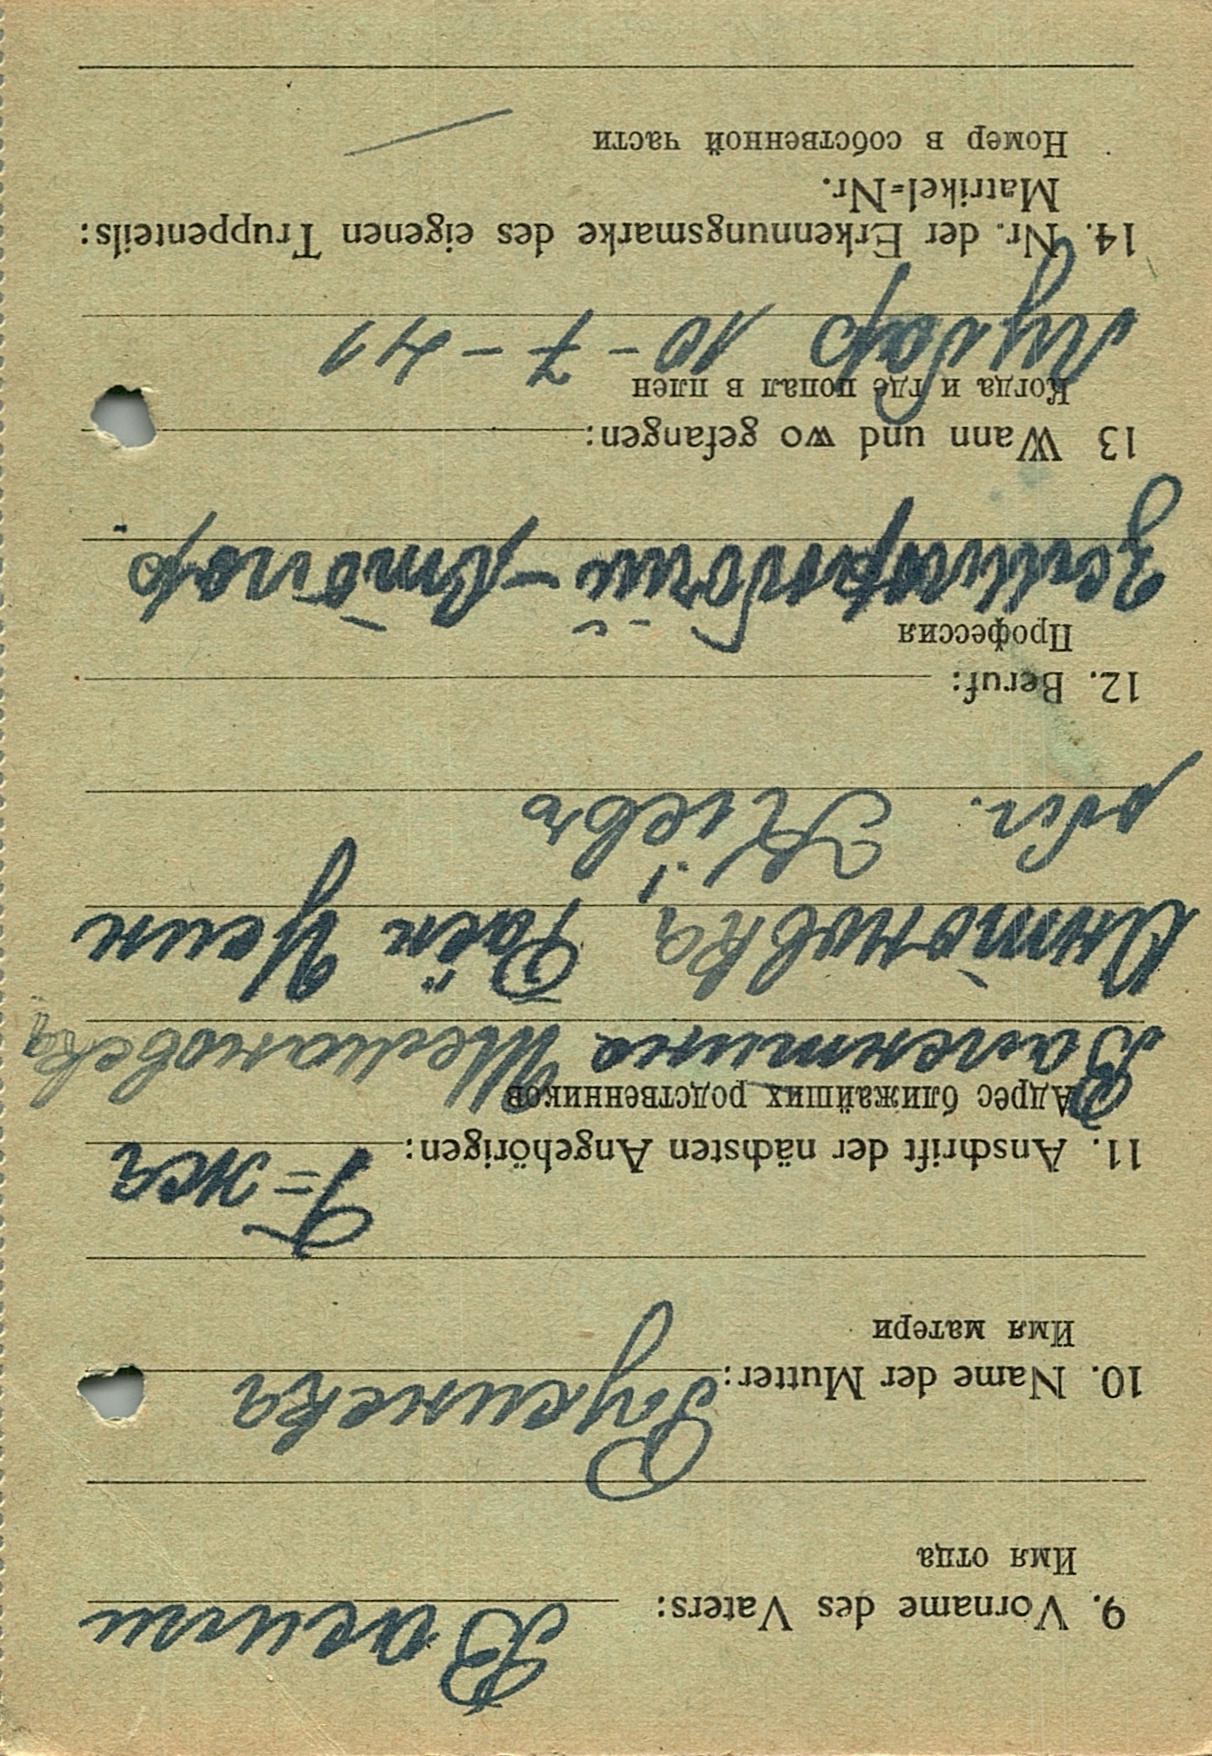 9. Vorname des Vaters: Василий
Имя отца
10. Name der Mutter: Русинска
Имя матери
11. Anschrift der nächsten Angehörigen:
Адрес ближайших родственников
Валентина
Антоновка, Раён
обл. Киевъ
12. Beruf:
Профессия
13 Wann und wo gefangen:
Когда и где попал в плен
Любар 10-7-41
14. Nr. der Erkennungsmarke des eigenen Truppenteils:
Matrikel-Nr.
Номер в собственной части